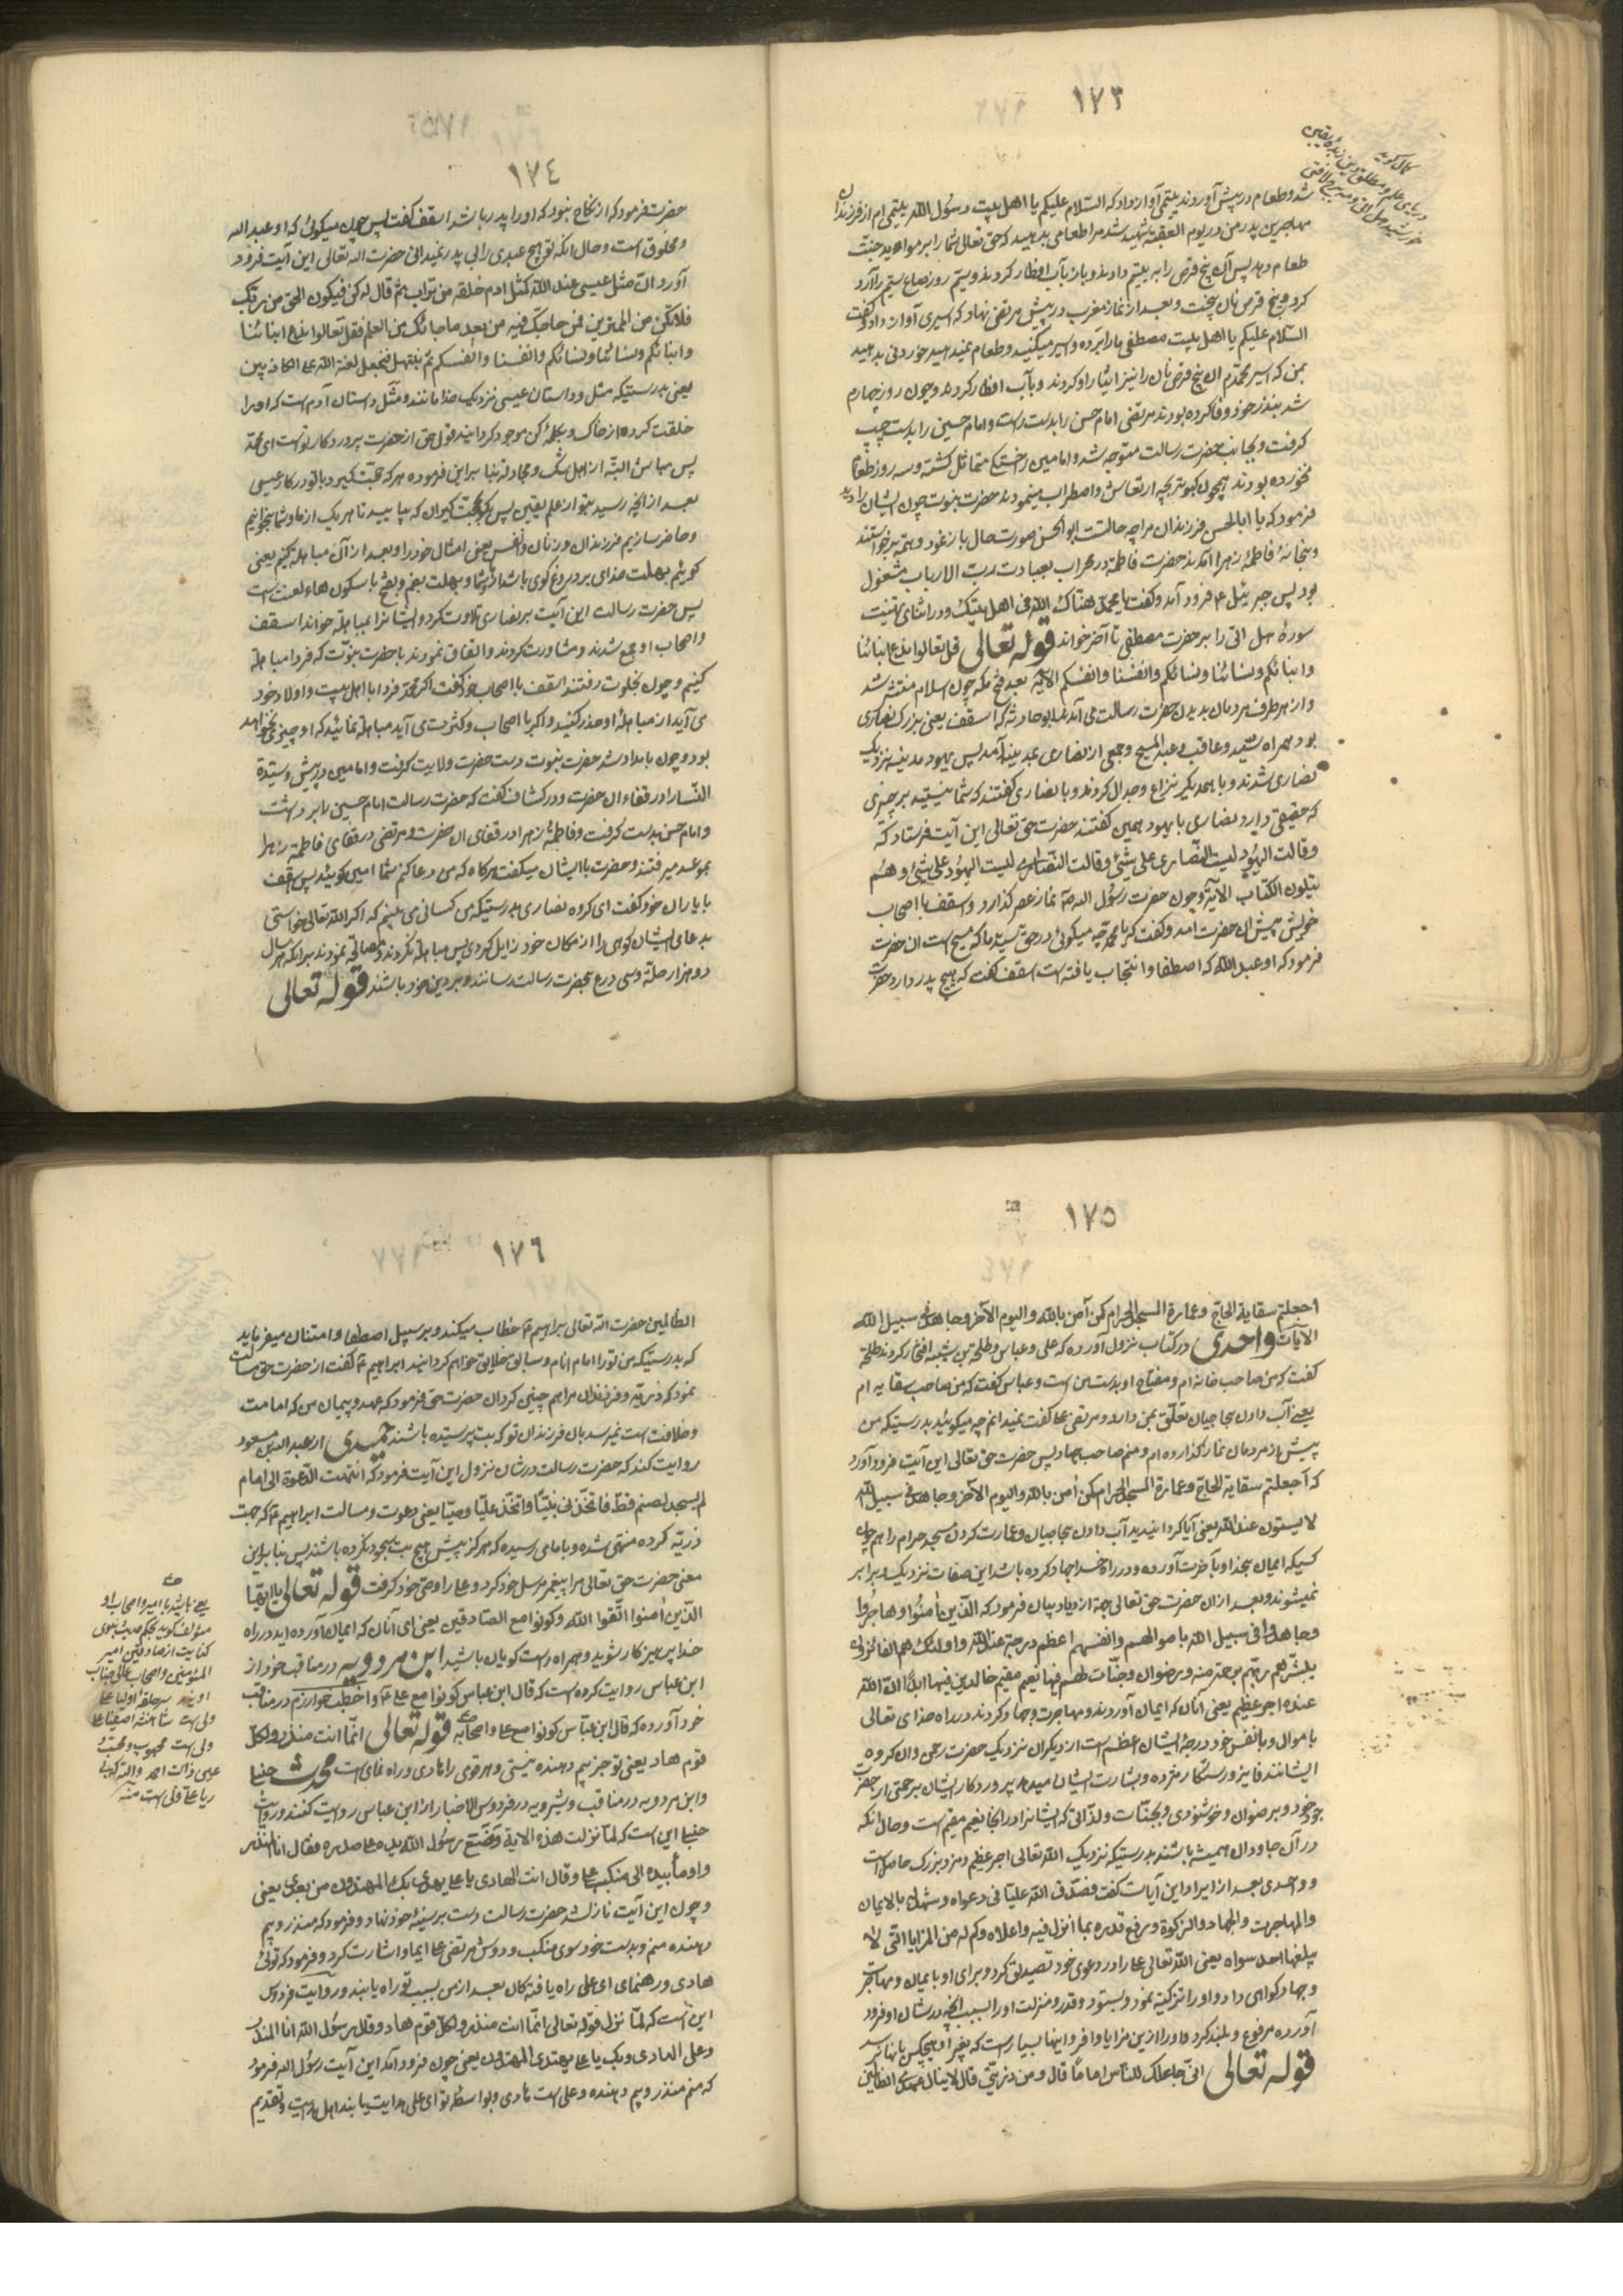 ١٧٣
شد و طعام در پیش آوردند یتیمی آواز داد که السّلام علیکم یا اهل بیت رسول الله یتیمی ام از فرزندان
مهاجرین پدر من در یوم العقبه شهید شد مرا طعامی بدهید که حق تعالی شما را بر موائد جنّت
طعام دهد پس آن پنج قرص را به یتیم دادند و باز بآب افطار کردند و سیم روز صاع سیّم را آرد
کرد و پنج قرص نان پخت و بعد از نماز مغرب در پیش مرتضی نهاد که اسیری آواز داد و گفت
السّلام علیکم یا اهل بیت مصطفی ما را برده و اسیر میکنید و طعام نمیدهید خوردنی بدهید
بمن که اسیر محمّدم آن پنج قرص نان را نیز ایثار او کردند و بآب افطار کردند و چون روز چهارم
شد بنذر خود وفا کرده بودند مرتضی امام حسن را بدست راست و امام حسین را بدست چپ
گرفت و بجانب حضرت رسالت متوجه شد و امامین متمائل گشته و سه روز طعام
نخورده بودند همچون کبوتر بچه ارتعاش و اضطراب مینمودند حضرت نبوت چون ایشان را دید
فرمود که یا ابا الحسن فرزندان مرا چه حالتست ابو الحسن صورت حال باز نمود و همه برخواستند
و بخانهٔ فاطمهٔ زهرا آمدند حضرت فاطمه در محراب بعبادت رب الارباب مشغول
بود پس جبرئیل ع فرود آمد و گفت یا محمّد هنّاک الله فی اهل بیتک و در اثنای تهنیت
سورهٔ هل اتی را بر حضرت مصطفی تا آخر خواند قوله تعالی قل تعالوا ندع ابنائنا
و ابنائکم و نسائنا و نسائکم و انفسنا و انفسکم الآیة بعد فتح مکه چون اسلام منتشر شد
و از هر طرف مردمان بدیدن حضرت رسالت می آمدند ابو حارثه که اسقف یعنی بزرگ نصاری
بود همراه سیّد و عاقب و عبد المسیح و جمعی از نصاری بمدینه آمد پس یهود مدینه نزدیک
نصاری شدند و با همدیگر نزاع و جدال کردند و با نصاری گفتند که شما نیستید بر چیزی
که حقیقتی دارد نصاری با یهود همین گفتند حضرت حق تعالی این آیت فرستاد که
وقالت الیهود لیست النّصاری علی شیئ وقالت النّصاری لیست الیهود علی شیئ و هم
یتلون الکتاب الآیة و چون حضرت رسول الله ص نماز عصر گذارد و اسقف با اصحاب
خویش پیش آن حضرت آمد و گفت که یا محمد چه میگوئی در حق سید ما که مسیح است آن حضرت
فرمود که او عبد الله که اصطفا و انتجاب یافته است اسقف گفت که هیچ پدر دارد حضرت
١٧٤
حضرت فرمود که از نکاح نبود که او را پدر باشد اسقف گفت پس چون میگوئی که او عبد الله
و مخلوق است و حال آنکه تو هیچ عبدی را بی پدر نمیدانی حضرت الله تعالی این آیت فرود
آورد انّ مثل عیسی عند الله کمثل آدم خلقه من تراب ثمّ قال له کن فیکون الحق من ربّک
فلا تکن من الممترین فمن حاجّک فیه من بعد ما جائک من العلم فقل تعالوا ندع ابنائنا
و ابنائکم و نسائنا و نسائکم و انفسنا و انفسکم ثم نبتهل فنجعل لعنة الله علی الکاذبین
یعنی بدرستیکه مثل و داستان عیسی نزدیک خدا مانند و مثل داستان آدم است که او را
خلقت کرده از خاک و بکلمهٔ کن موجود گردانید قول حق از حضرت پروردگار تو است ای محمّد
پس مباش البتّه از اهل شک و مجادله بنا بر این فرموده هر که حجّت گیرد با تو در کار عیسی
بعد از آنچه رسید بتو از علم یقین پس بگو بحجّت گیران که بیایید تا هر یک از ما و شما بخوانیم
و حاضر سازیم فرزندان و زنان و نفس یعنی امثال خود را و بعد از آن مباهله کنیم یعنی
گوئیم بهلت خدای بر دروغ گوی باشد از ما و شما و بهلت بضم و بفتح با سکون هاء لعنت است
پس حضرت رسالت این آیت بر نصاری تلاوت کرد و ایشانرا بمباهله خواند اسقف
و اصحاب او جمع شدند و مشاورت کردند و اتفاق نمودند با حضرت نبوّت که فردا مباهله
کنیم و چون بخلوت رفتند اسقف با اصحاب خود گفت اگر محمّد فردا با اهل بیت و اولاد خود
می آید از مباهلهٔ او حذر کنید و اگر با اصحاب و کثرت می آید مباهله نمائید که او چیزی نخواهد
بود و چون بامداد شد حضرت نبوت دست حضرت ولایت گرفت و امامین در پیش و سیّدة
النّسا را در قفاء آن حضرت و در کشاف گفت که حضرت رسالت امام حسین را بر داشت
و امام حسن بدست گرفت و فاطمهٔ زهرا در قفای آن حضرت و مرتضی در قفای فاطمهٔ زهرا
بموعد میرفتند و حضرت با ایشان میگفت هرگاه که من دعا کنم شما امین گویید پس اسقف
با یاران خود گفت ای گروه نصاری بدرستیکه من کسانی می بینم که اگر الله تعالی خواستی
بدعای ایشان کوهی را از مکان خود زایل کردی پس مباهله نکردند و مصالحه نمودند بر آنکه هر سال
دو هزار حلّه و سی درع بحضرت رسالت رسانند و بر دین خود باشند قوله تعالی
١٧٥
اجعلتم سقایة الحاجّ و عمارة المسجد الحرام کمن آمن بالله و الیوم الآخر و جاهد فی سبیل الله
الآیات واحدی در کتاب نزول آورده که علی و عباس و طلحة بن شیبه افتخار کردند طلحه
گفت که من صاحب خانه ام و مفتاح او بدست من است و عباس گفت که من صاحب سقایه ام
یعنی آب دادن حاجیان تعلّق بمن دارد و مرتضی علی گفت نمیدانم چه میگوئید بدرستیکه من
پیش از مردمان نماز گذارده ام و منم صاحب جهاد پس حضرت حق تعالی این آیت فرود آورد
که اجعلتم سقایة الحاجّ و عمارة المسجد الحرام کمن آمن بالله و الیوم الآخر و جاهد فی سبیل الله
لا یستوون عند الله یعنی آیا گردانیدید آب دادن حاجیان و عمارت کردن مسجد حرام را همچون
کسیکه ایمان بخدا و بآخرت آورده و در راه خدا جهاد کرده باشد این صفات نزدیک برابر
نمیشوند و بعد از آن حضرت حق تعالی جهة ازدیاد بیان فرمود که الّذین آمنوا و هاجروا
و جاهدوا فی سبیل الله باموالهم و انفسهم اعظم درجة عند الله و اولئک هم الفائزون
یبشّرهم ربّهم برحمة منه و رضوان و جنّات لهم فیها نعیم مقیم خالدین فیها ابدا انّ الله
عنده اجر عظیم یعنی آنان که ایمان آوردند و مهاجرت و جهاد کردند در راه خدای تعالی
باموال و بانفس خود درجهٔ ایشان اعظم است از دیگران نزدیک حضرت رحمن و آن گروه
ایشانند فایز و رستگار مژده و بشارت ایشان میدهد پروردگار ایشان برحمتی از حضرت
خود و برضوان و خوشنودی و بجنّات و لذّاتی که ایشانرا در آنجا نعیم مقیم است و حال آنکه
در آن جاودان همیشه باشند بدرستیکه نزدیک الله تعالی اجر عظیم و مزد بزرگ حاصل است
و واحدی بعد از ایراد این آیات گفت فصدّق الله علیّا فی دعواه و شهد له بالایمان
و المهاجرت و الجهاد و الزکوة و رفع قدره بما انزل فیه و اعلاه و کم له من المزایا التی لا
یبلغها احد سواه یعنی الله تعالی علی را در دعوی خود تصدیق کرد و برای او بایمان و مهاجرت
و جهاد گواهی داد و او را تزکیه نمود و بستود و قدر و منزلت او را بسبب آنچه در شان او فرود
آورده مرفوع و بلند کرد و او را ازین مزایا وافر و اینها بسیار است که بغیر او هیچکس بآنها نرسد
قوله تعالی انّی جاعلک للنّاس اماما قال و من ذرّیّتی قال لا ینال عهدی الظالمین
١٧٦
الظالمین حضرت الله تعالی بابراهیم ع خطاب میکند و بر سبیل اصطفا و امتنان میفرماید
که بدرستیکه من تو را امام انام و سابق خلایق خواهم گردانید ابراهیم ع گفت از حضرت حق مسألت
نمود که ذریّه و فرزندان مرا هم چنین گردان حضرت حق فرمود که عهد و پیمان من که امامت
و خلافت است نمیرسد بآن فرزندان تو که بت پرستیده باشند حمیدی از عبد الله بن مسعود
روایت کند که حضرت رسالت در شان نزول این آیت فرمود که انتهت الدّعوة الی امام
لم یسجد لصنم قطّ فاتّخذنی نبیّا و اتّخذ علیّا وصیّا یعنی دعوت و مسالت ابراهیم ع که جهت
ذریّه کرده منتهی شده و بامامی رسیده که هرگز پیش هیچ بت سجود نکرده باشند پس بنا بر این
معنی حضرت حق تعالی مرا پیغمبر مرسل خود کرد و علی را وصی خود گرفت قوله تعالی یا ایّها
الّذین آمنوا اتّقوا الله و کونوا مع الصّادقین یعنی ای آنان که ایمان آورده اید در راه
خدا پرهیزکار شوید و همراه راست گویان باشید ابن مردویه در مناقب خود از
ابن عباس روایت کرده است که قال ابن عباس کونوا مع علی ع و اخطب خوارزم در مناقب
خود آورده که قال ابن عبّاس کونوا مع علی و اصحابه قوله تعالی انّما انت منذر و لکلّ
قوم هاد یعنی تو جز بیم دهنده نیستی و هر قومی را هادی و راه نمای است محدث حنبلی
و ابن مردویه در مناقب و شیرویه در فردوس الاخبار از ابن عباس روایت کنند و روایت
حنبلی این است که لمّا نزلت هذه الآیة وضع رسول الله یده علی صدره فقال انا المنذر
و اومأ بیده الی منکب علی و قال انت الهادی یا علی یهتدی بک المهتدون من بعدی یعنی
و چون این آیت نازل شد حضرت رسالت دست بر سینهٔ خود نهاد و فرمود که منذر و بیم
دهنده منم و بدست خود سوی منکب و دوش مرتضی علی ایما و اشارت کرد و فرمود که توئی
هادی و رهنمای ای علی راه یافتگان بعد از من بسبب تو راه یابند و روایت فردوس
این است که لمّا نزل قوله تعالی انّما انت منذر و لکلّ قوم هاد و قال رسول الله انا المنذر
و علی الهادی و بک یا علی یهتدی المهتدون یعنی چون فرود آمد این آیت رسول الله فرمود
که منم منذر و بیم دهنده و علی است هادی و بواسطهٔ تو ای علی هدایت یابند اهل هدایت و تقدیم
یعنی باشید با امیر و اصحاب او
مؤلف گوید بحکم حدیث نبوی
کنایت از صادقین امیر
المؤمنین و اصحاب عالی جناب
اویند سر حلقهٔ اولیا علی
ولی است شاهنشه اصفیا علی
ولی است محبوب و محبّ